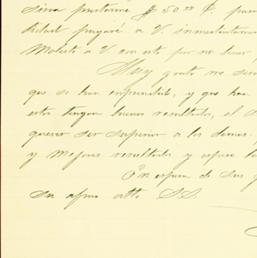 sirva prestarme $50.00 ₵ para
pagaré a V. inmediatamente
Molesto a V con esto por no tener
Muy grato me será
que se han emprendido, y que han
esto tengan buenos resultados, el
querer ser superior a los demas
y mejores resultados y espero
En espera de sus
su afmo atto S.S.